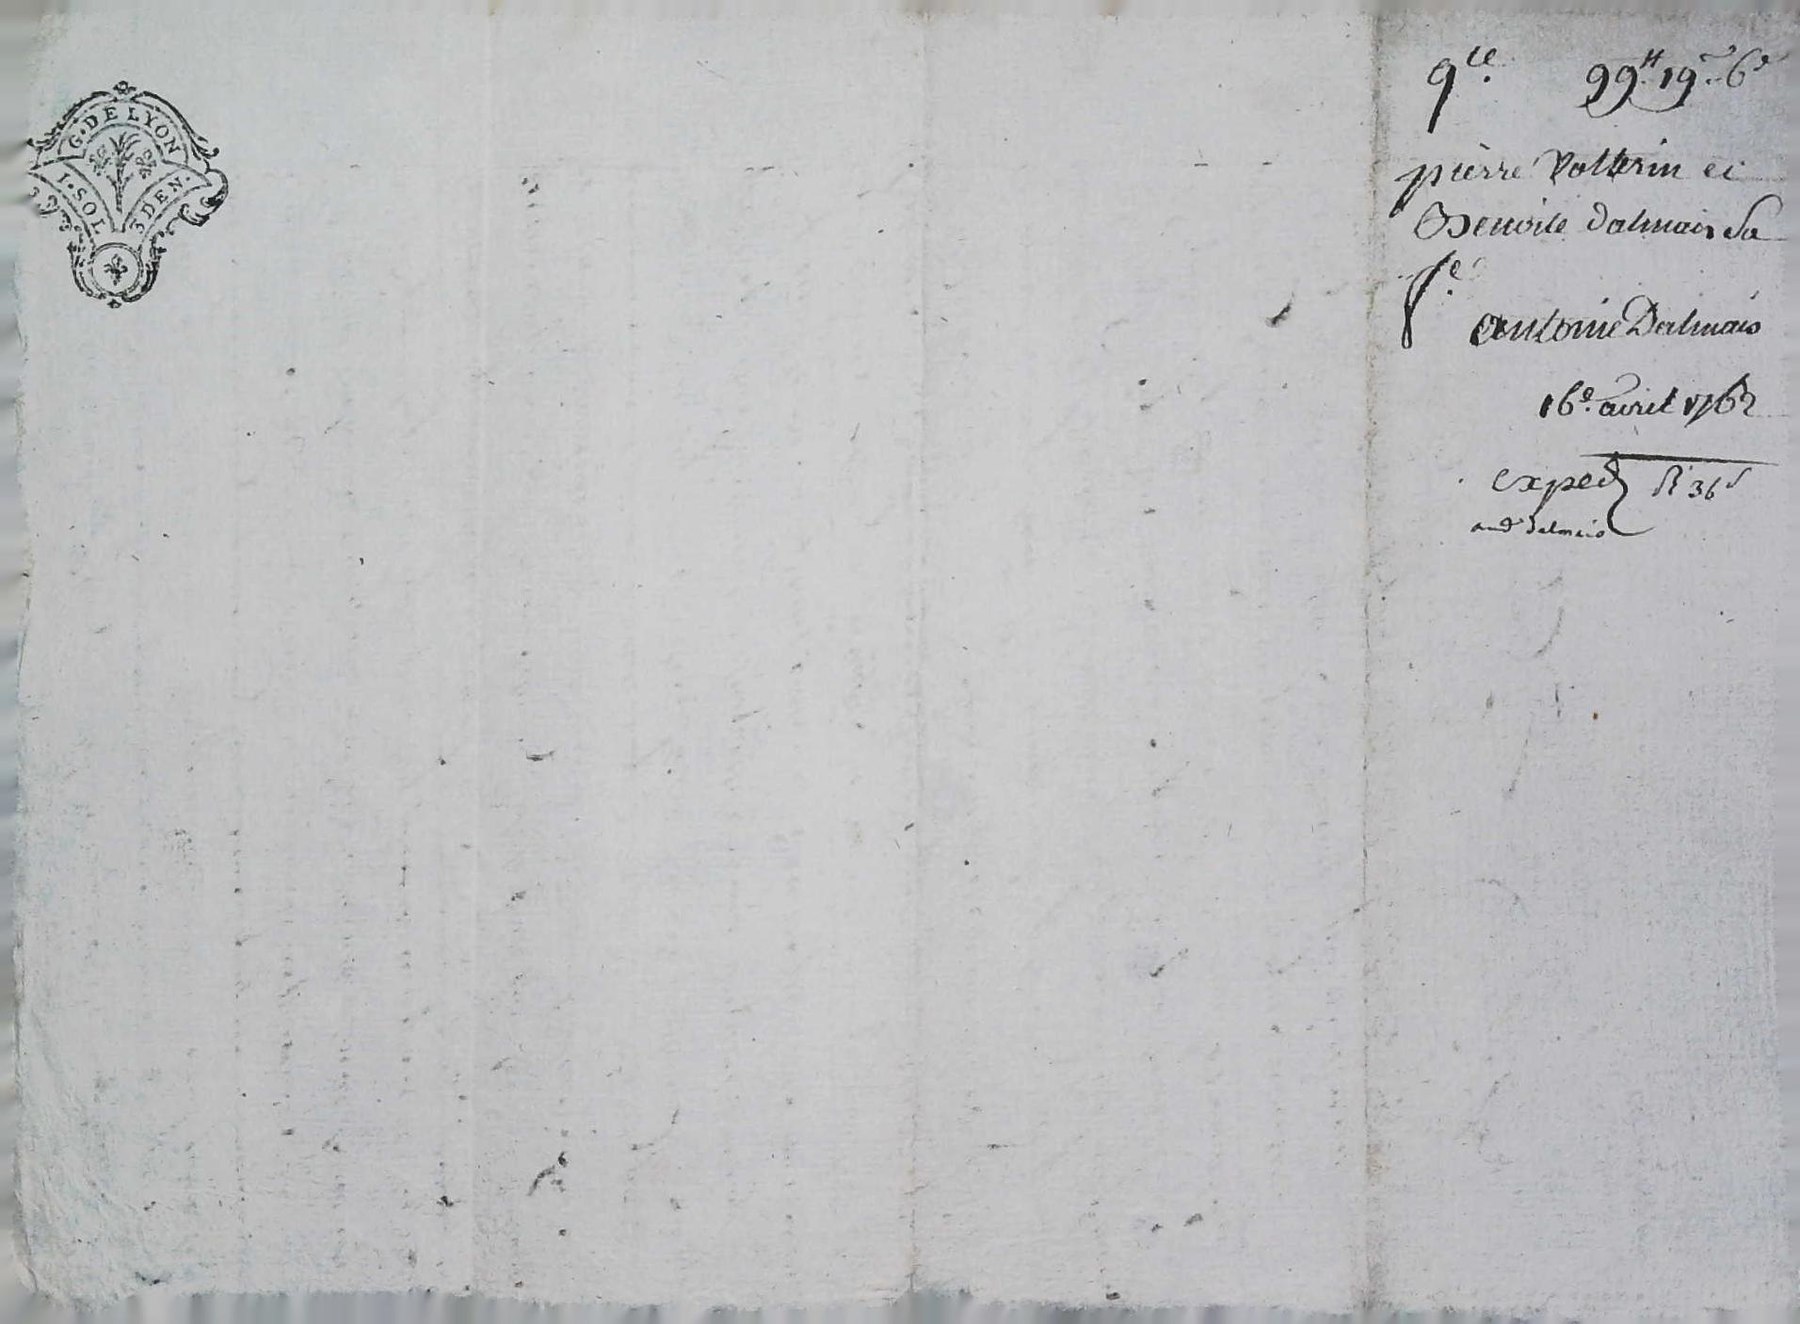 G. DE LYON
1. SOL 3 DEN.
qce. 99₶ 19s 6d
pierre Vallerin et
Benoite dalmais sa
fe.
antoine Dalmais
16e. avril 1762
exped R 36s
and dalmais